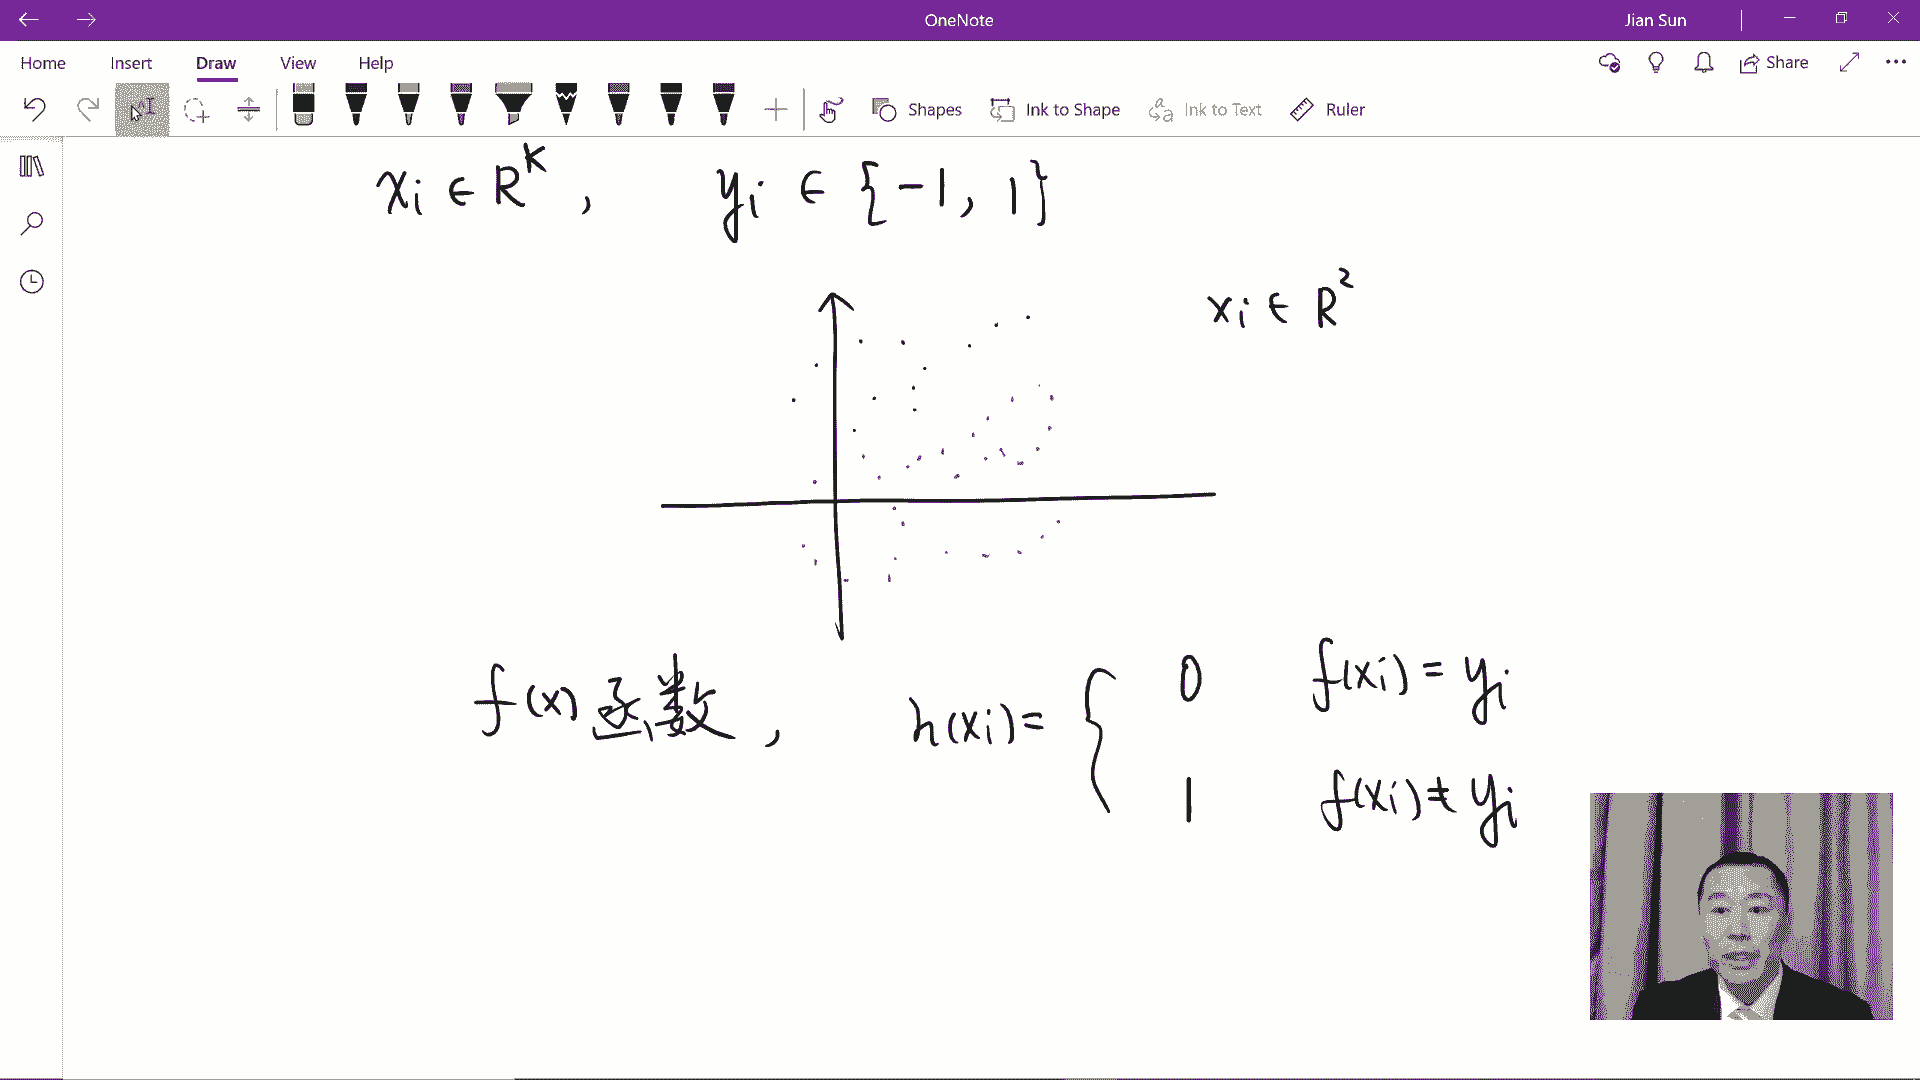 OneNote
Jian Sun
Home Insert Draw View Help
Share
Shapes Ink to Shape Ink to Text Ruler
xi ∈ R^K, yi ∈ {-1, 1}
xi ∈ R^2
f(x) 函数, h(xi) = { 0 f(xi) = yi
1 f(xi) ≠ yi